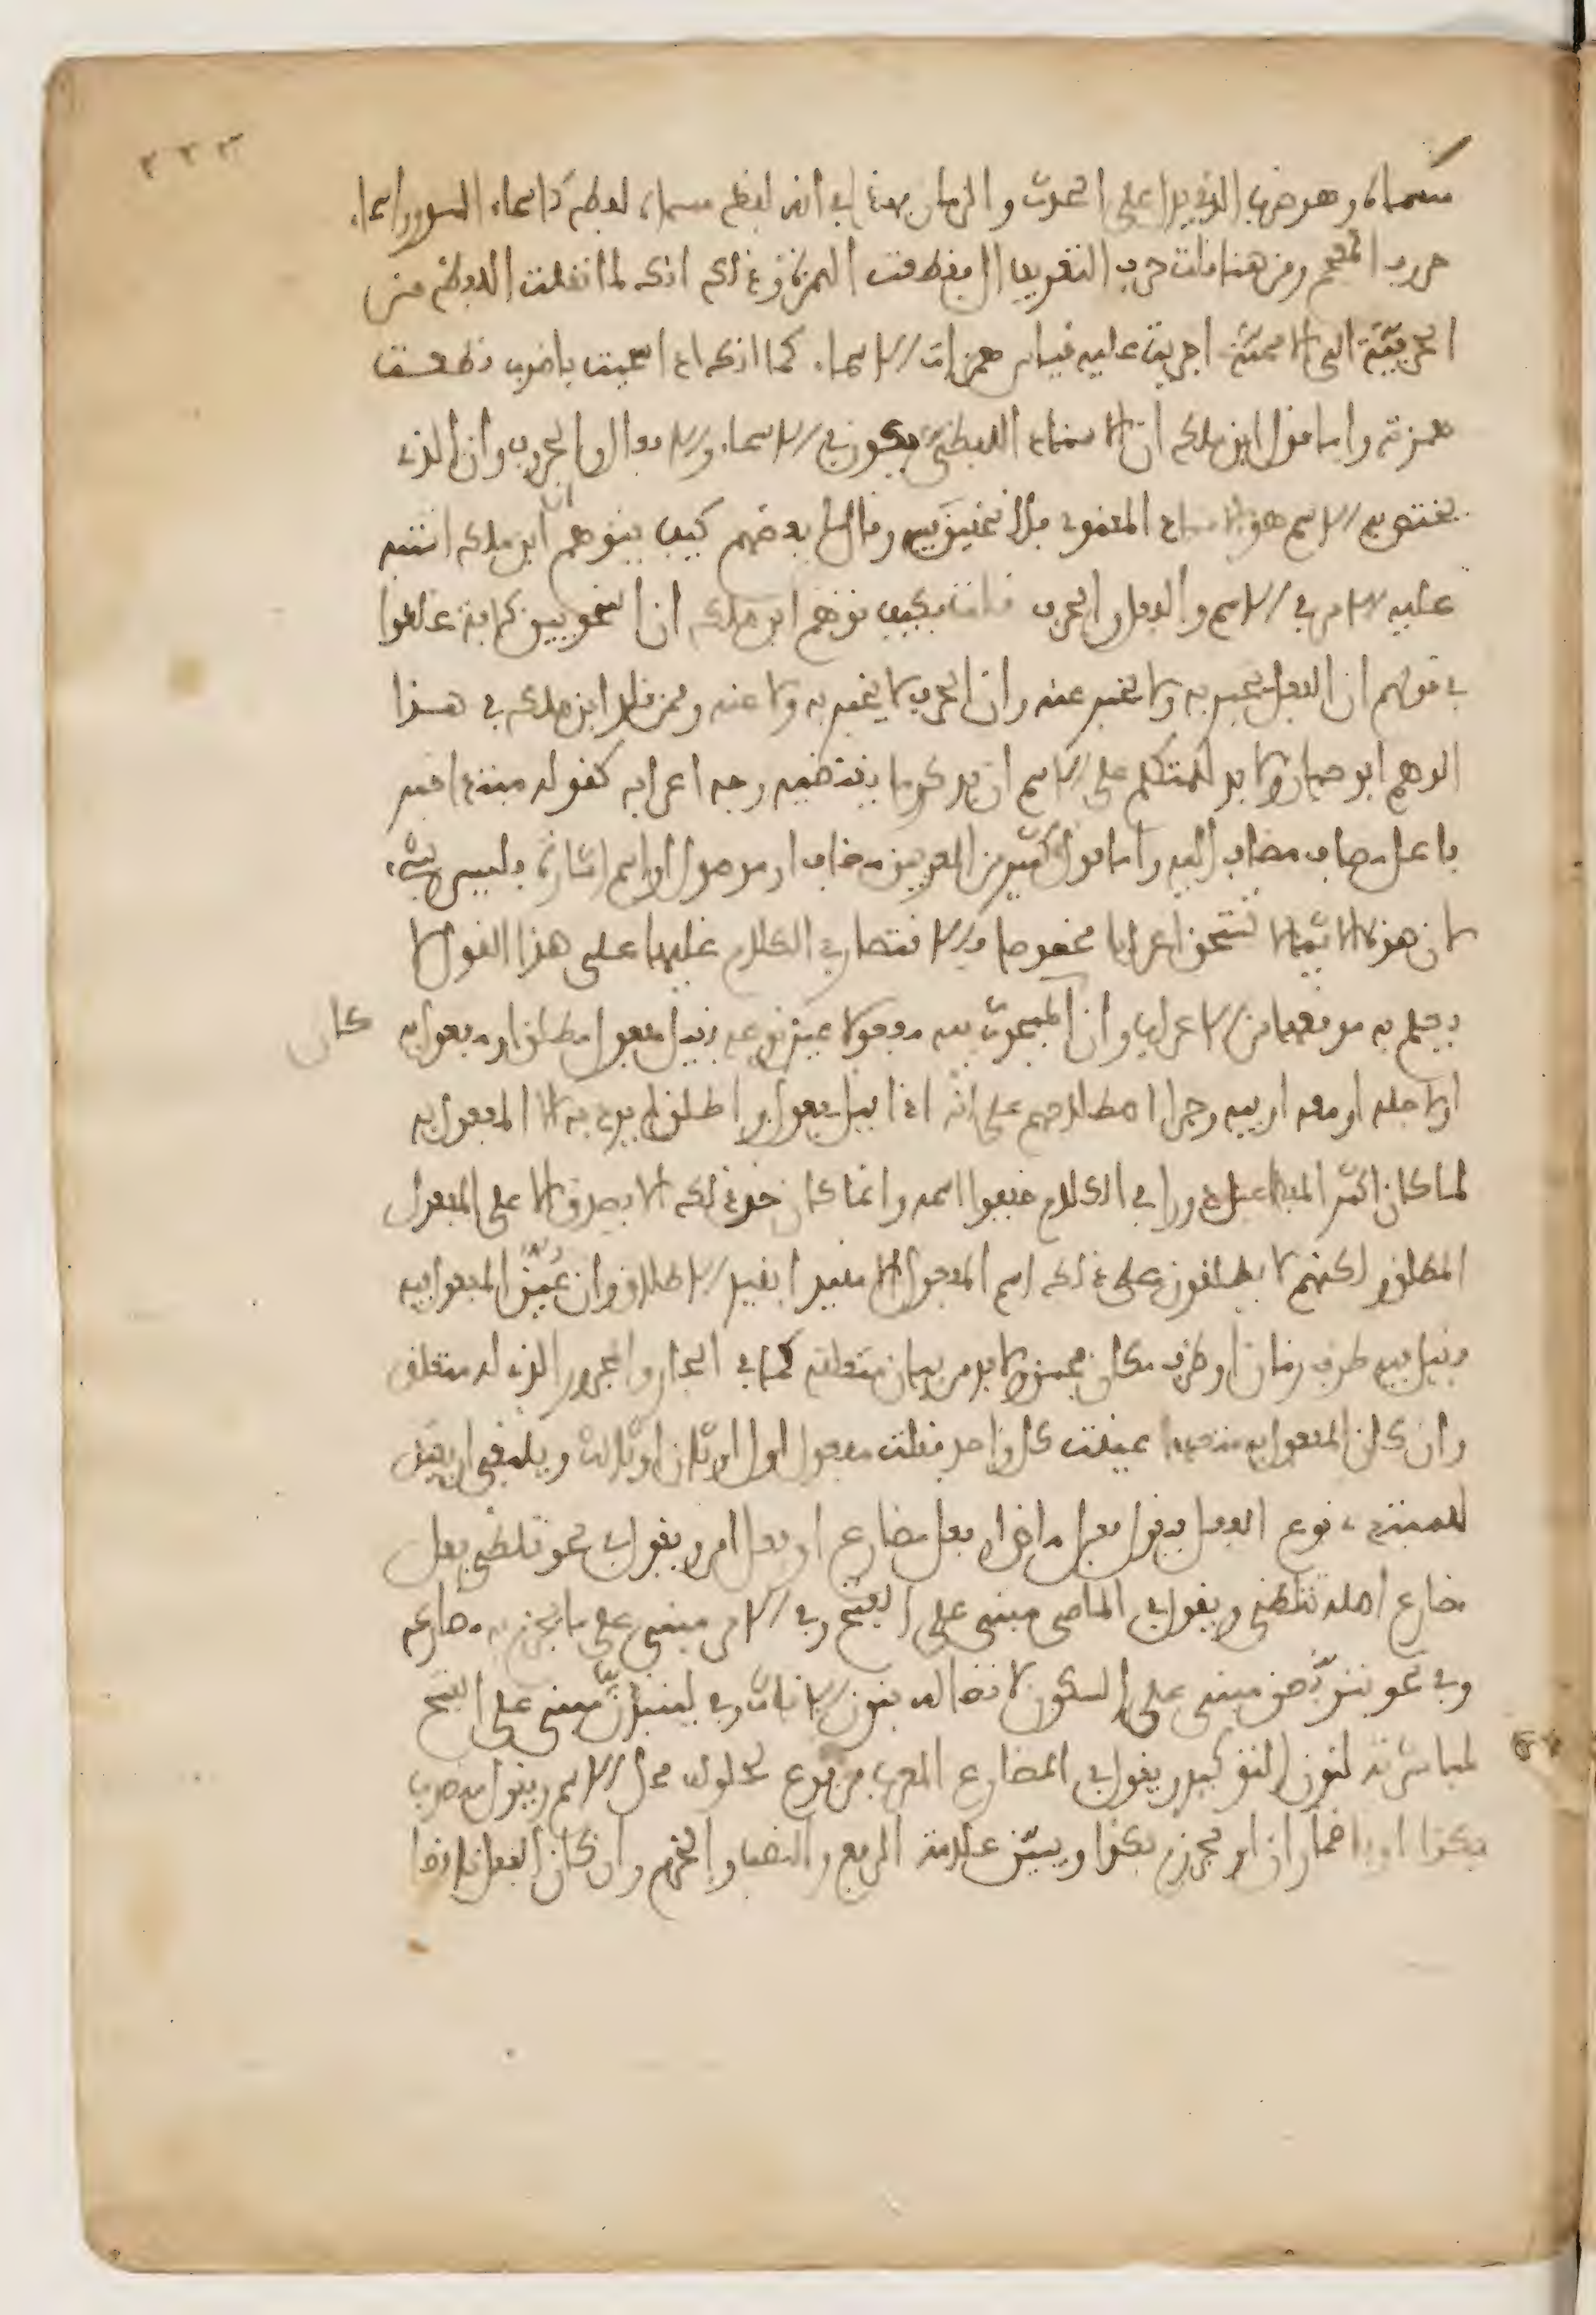 ٣٢٣
مسماه وهو ضرب الذي يدل على الحدث والزمان بهذا في انه لفظ مسماه لفظ كاسماء السور واسماء
حروف المعجم ومن هنا قلت حرف التعريف ال فقطعت الهمزة وذلك انك لما نقلت اللفظة من
الحرفيّة الى الاسميّة اجريت عليه قياس همزات الاسماء كما انك اذا سميت باضرب قطعت
همزته واما قول ابن ملك ان الاسناد اللفظي يكون في الاسماء والافعال والحروف وان الذي
يختص به الاسم هو الاسناد المعنوي فلا تحقيق فيه وقال لي بعضهم كيف يتوهم ان ابن ملك اشتبه
عليه الامر في الاسم والفعل والحرف فقلت فكيف توهم ابن ملك ان النحويين كافة غلطوا
في قولهم ان الفعل يخبر به ولا يخبر عنه وان الحرف لا يخبر به ولا عنه وممن قلد ابن ملك في هذا
الوهم ابو حيان ولا بد للمتكلم على الاسم ان يذكر ما يقتضيه وجه اعرابه كقوله مبتدا خبر
فاعل مضاف مضاف اليه واما قول كثير من المعربين مضاف او موصول او اسم اشارة فليس بشيء
لان هذه الاشياء لا تستحق اعرابا مخصوصا فالاقتصار في الكلام عليها على هذا القول لا
يعلم به موقعها من الاعراب وان كان المبحوث فيه مفعولا عين نوعه فقيل مفعول مطلق او مفعول به
او لاجله او معه او فيه وجرى اصطلاحهم على انه اذا قيل مفعول واطلق لم يرد به الا المفعول به
لما كان اكثر المفاعيل دورا في الكلام خففوا اسمه وانما كان حق ذلك الا يصدق الا على المفعول
المطلق ولكنهم لا يطلقون على ذلك اسم المفعول الا مقيدا بقيد الاطلاق وان عُيّن المفعول فيه
فقيل فيه ظرف زمان او ظرف مكان فحسن ولا بد من بيان متعلقه كما في الجار والمجرور الذي له متعلق
وان كان المفعول به متعددا عينت كل واحد فقلت مفعول اول او ثان او ثالث وينبغي ان يعين
للمبتدي نوع الفعل فيقول فعل ماض او فعل مضارع او فعل امر ويقول في نحو تلظى فعل
مضارع اصله تتلظى ويقول في الماضي مبني على الفتح وفي الامر مبني على ما يجزم به مضارعه
وفي نحو يتربّصن مبني على السكون لاتصاله بنون الاناث وفي لينبذنّ مبني على الفتح
لمباشرته لنون التوكيد ويقول في المضارع المعرب مرفوع لحلوله محل الاسم ويقول منصوب
بكذا او باضمار ان او مجزوم بكذا ويبيّن علامة الرفع والنصب والجزم وان كان الفعل ناقصا